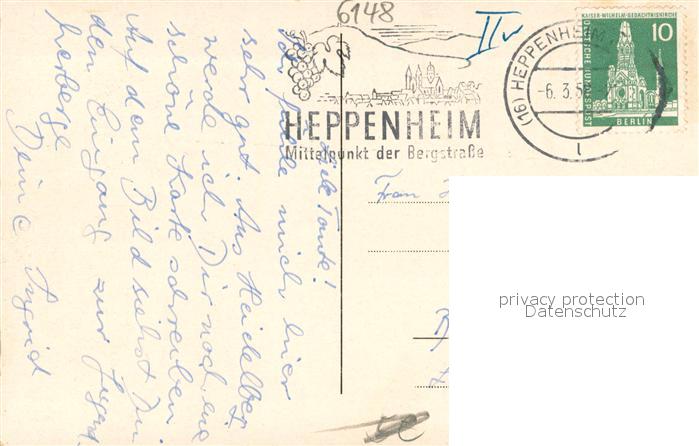 6148
II
HEPPENHEIM
Mittelpunkt der Bergstraße
(16) HEPPENHEIM
-6. 3.5
1
KAISER-WILHELM-GEDÄCHTNISKIRCHE
10
DEUTSCHE BUNDESPOST
BERLIN
Tante!
fühle mich hier
sehr gut. Aus Heidelberg
werde ich Dir noch eine
schöne Karte schreiben.
Auf dem Bild siehst Du
den Eingang zur Jugend-
herberge.
Deine Ingrid
Frau
privacy protection
Datenschutz